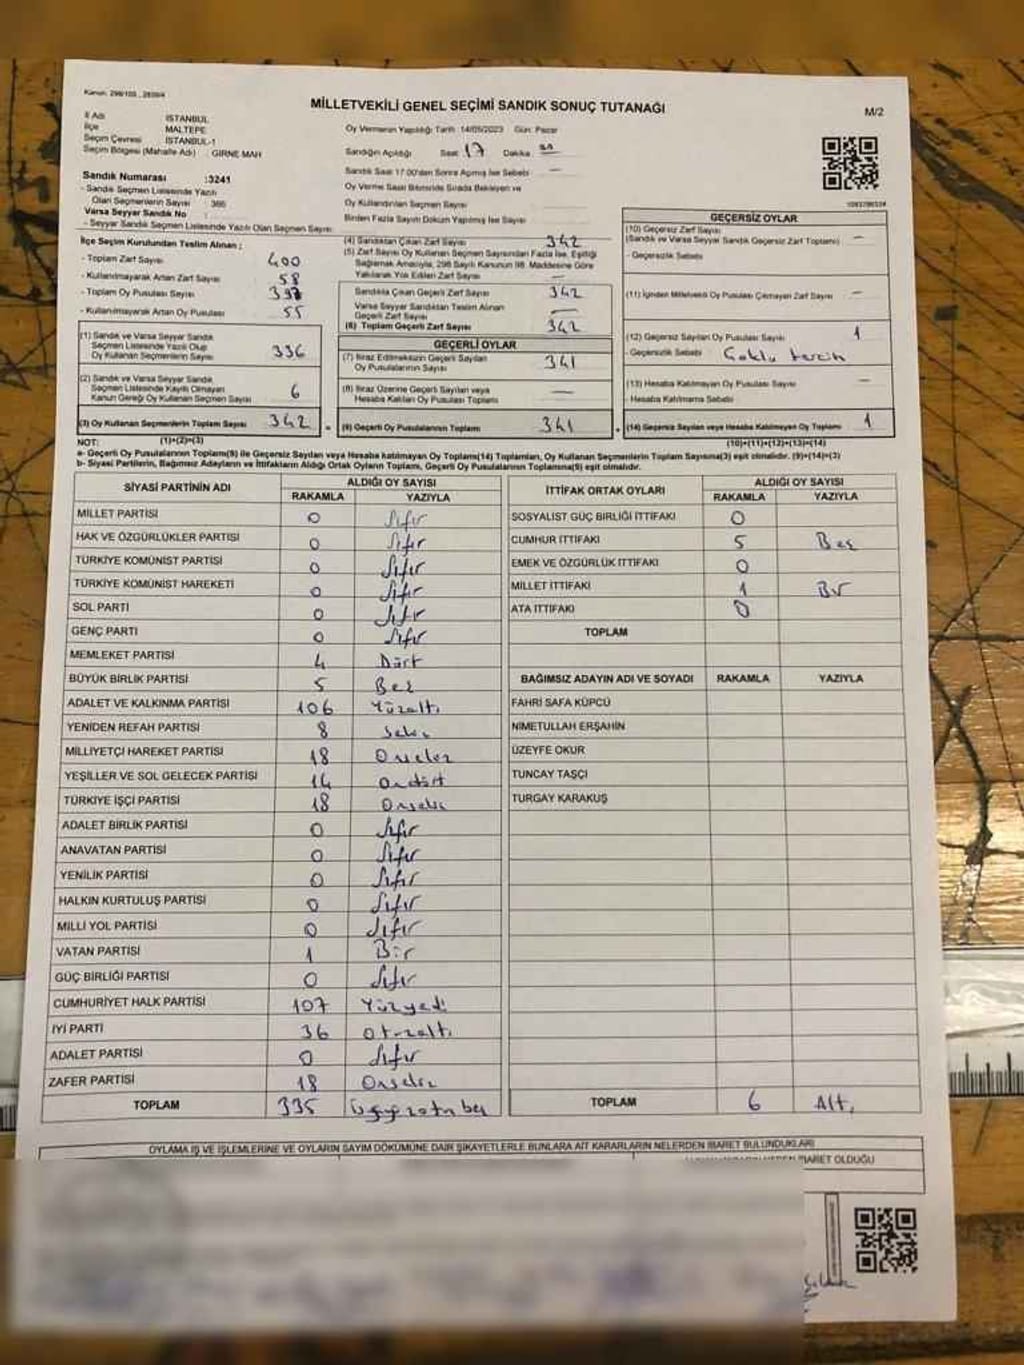 Kanun: 298/105 , 2839/4
MİLLETVEKİLİ GENEL SEÇİMİ SANDIK SONUÇ TUTANAĞI
M/2
İl Adı : İSTANBUL
İlçe : MALTEPE
Seçim Çevresi : İSTANBUL-1
Seçim Bölgesi (Mahalle Adı) : GİRNE MAH
Oy Vermenin Yapıldığı Tarih :14/05/2023 Gün: Pazar
Sandığın Açıldığı Saat 17 Dakika
Sandık Saat 17:00'den Sonra Açılmış İse Sebebi —
Oy Verme Saati Bitiminde Sırada Bekleyen ve
Oy Kullandırılan Seçmen Sayısı
Birden Fazla Sayım Döküm Yapılmış İse Sayısı
Sandık Numarası :3241
- Sandık Seçmen Listesinde Yazılı
Olan Seçmenlerin Sayısı : 386
Varsa Seyyar Sandık No :
- Seyyar Sandık Seçmen Listesinde Yazılı Olan Seçmen Sayısı:
İlçe Seçim Kurulundan Teslim Alınan ;
- Toplam Zarf Sayısı 400
- Kullanılmayarak Artan Zarf Sayısı 58
- Toplam Oy Pusulası Sayısı
- Kullanılmayarak Artan Oy Pusulası 55
(1) Sandık ve Varsa Seyyar Sandık
Seçmen Listesinde Yazılı Olup
Oy Kullanan Seçmenlerin Sayısı 336
(2) Sandık ve Varsa Seyyar Sandık
Seçmen Listesinde Kayıtlı Olmayan
Kanun Gereği Oy Kullanan Seçmen Sayısı 6
(3) Oy Kullanan Seçmenlerin Toplam Sayısı 342
(1)+(2)=(3)
(4) Sandıktan Çıkan Zarf Sayısı 342
(5) Zarf Sayısı Oy Kullanan Seçmen Sayısından Fazla İse, Eşitliği
Sağlamak Amacıyla, 298 Sayılı Kanunun 98. Maddesine Göre
Yakılarak Yok Edilen Zarf Sayısı —
Sandıkta Çıkan Geçerli Zarf Sayısı 342
Varsa Seyyar Sandıktan Teslim Alınan
Geçerli Zarf Sayısı —
(6) Toplam Geçerli Zarf Sayısı 342
GEÇERLİ OYLAR
(7) İtiraz Edilmeksizin Geçerli Sayılan
Oy Pusulalarının Sayısı 341
(8) İtiraz Üzerine Geçerli Sayılan veya
Hesaba Katılan Oy Pusulası Toplamı —
(9) Geçerli Oy Pusulalarının Toplamı 341
GEÇERSİZ OYLAR
(10) Geçersiz Zarf Sayısı
(Sandık ve Varsa Seyyar Sandık Geçersiz Zarf Toplamı) —
- Geçersizlik Sebebi
(11) İçinden Milletvekili Oy Pusulası Çıkmayan Zarf Sayısı —
(12) Geçersiz Sayılan Oy Pusulası Sayısı 1
- Geçersizlik Sebebi Çoklu tercih
(13) Hesaba Katılmayan Oy Pusulası Sayısı —
- Hesaba Katılmama Sebebi
(14) Geçersiz Sayılan veya Hesaba Katılmayan Oy Toplamı 1
(10)+(11)+(12)+(13)=(14)
NOT:
a- Geçerli Oy Pusulalarının Toplamı(9) ile Geçersiz Sayılan veya Hesaba katılmayan Oy Toplamı(14) Toplamları, Oy Kullanan Seçmenlerin Toplam Sayısına(3) eşit olmalıdır. (9)+(14)=(3)
b- Siyasi Partilerin, Bağımsız Adayların ve İttifakların Aldığı Ortak Oyların Toplamı, Geçerli Oy Pusulalarının Toplamına(9) eşit olmalıdır.
SİYASİ PARTİNİN ADI ALDIĞI OY SAYISI
RAKAMLA YAZIYLA
MİLLET PARTİSİ 0 Sıfır
HAK VE ÖZGÜRLÜKLER PARTİSİ 0 Sıfır
TÜRKİYE KOMÜNİST PARTİSİ 0 Sıfır
TÜRKİYE KOMÜNİST HAREKETİ 0 Sıfır
SOL PARTİ 0 Sıfır
GENÇ PARTİ 0 Sıfır
MEMLEKET PARTİSİ 4 Dört
BÜYÜK BİRLİK PARTİSİ 5 Beş
ADALET VE KALKINMA PARTİSİ 106 Yüzaltı
YENİDEN REFAH PARTİSİ 8 Sekiz
MİLLİYETÇİ HAREKET PARTİSİ 18 Onsekiz
YEŞİLLER VE SOL GELECEK PARTİSİ 14 Ondört
TÜRKİYE İŞÇİ PARTİSİ 18 Onsekiz
ADALET BİRLİK PARTİSİ 0 Sıfır
ANAVATAN PARTİSİ 0 Sıfır
YENİLİK PARTİSİ 0 Sıfır
HALKIN KURTULUŞ PARTİSİ 0 Sıfır
MİLLİ YOL PARTİSİ 0 Sıfır
VATAN PARTİSİ 1 Bir
GÜÇ BİRLİĞİ PARTİSİ 0 Sıfır
CUMHURİYET HALK PARTİSİ 107 Yüzyedi
İYİ PARTİ 36 Otuzaltı
ADALET PARTİSİ 0 Sıfır
ZAFER PARTİSİ 18 Onsekiz
TOPLAM 335 Üçyüzotuzbeş
İTTİFAK ORTAK OYLARI ALDIĞI OY SAYISI
RAKAMLA YAZIYLA
SOSYALİST GÜÇ BİRLİĞİ İTTİFAKI 0
CUMHUR İTTİFAKI 5 Beş
EMEK VE ÖZGÜRLÜK İTTİFAKI 0
MİLLET İTTİFAKI 1 Bir
ATA İTTİFAKI 0
TOPLAM
BAĞIMSIZ ADAYIN ADI VE SOYADI RAKAMLA YAZIYLA
FAHRİ SAFA KÜPCÜ
NİMETULLAH ERŞAHİN
ÜZEYFE OKUR
TUNCAY TAŞÇI
TURGAY KARAKUŞ
TOPLAM 6 Altı
OYLAMA İŞ VE İŞLEMLERİNE VE OYLARIN SAYIM DÖKÜMÜNE DAİR ŞİKAYETLERLE BUNLARA AİT KARARLARIN NELERDEN İBARET BULUNDUKLARI
İBARET OLDUĞU